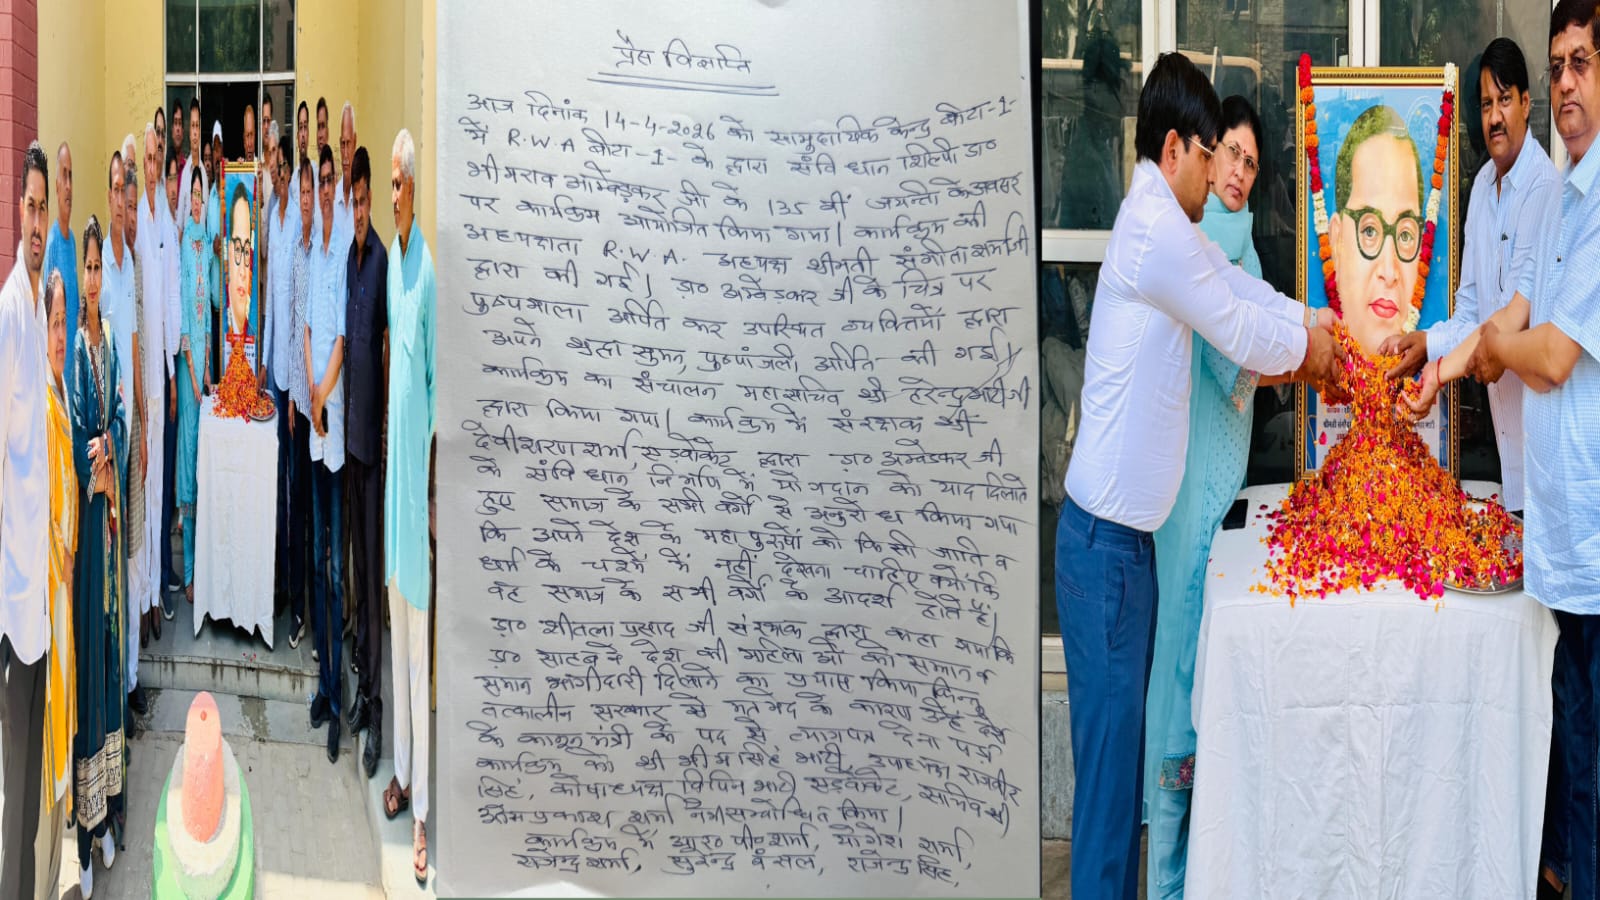 प्रैस विज्ञप्ति
आज दिनांक 14-4-2026 को सामुदायिक केन्द्र बीटा-1-
में R.W.A बीटा-1- के द्वारा संविधान शिल्पी डा०
भीमराव अम्बेडकर जी के 135 वीं जयन्ती के अवसर
पर कार्यक्रम आयोजित किया गया। कार्यक्रम की
अध्यक्षता R.W.A. अध्यक्ष श्रीमती संगीता शर्मा जी
द्वारा की गई। डा० अम्बेडकर जी के चित्र पर
पुष्पमाला अर्पित कर उपस्थित व्यक्तियों द्वारा
अपने श्रद्धा सुमन, पुष्पांजली अर्पित की गई।
कार्यक्रम का संचालन महासचिव श्री हरेन्द्र भाटी जी
द्वारा किया गया। कार्यक्रम में संरक्षक श्री
देवीशरण शर्मा, एडवोकेट द्वारा डा० अम्बेडकर जी
के संविधान निर्माण में योगदान को याद दिलाते
हुए समाज के सभी वर्गों से अनुरोध किया गया
कि अपने देश के महापुरुषों को किसी जाति व
धर्म के चश्में में नहीं देखना चाहिए क्योंकि
वह समाज के सभी वर्गों के आदर्श होते हैं।
डा० शीतला प्रसाद जी संरक्षक द्वारा कहा गया कि
डा० साहब ने देश की महिलाओं को सम्मान व
समान भागीदारी दिलाने का प्रयास किया किन्तु
तत्कालीन सरकार से मतभेद के कारण उन्हें देश
के कानून मंत्री के पद से त्यागपत्र देना पड़ा
कार्यक्रम को श्री भीम सिंह भाटी, उपाध्यक्ष राजवीर
सिंह, कोषाध्यक्ष विपिन भाटी एडवोकेट, सचिव श्री
ओमप्रकाश शर्मा ने सम्बोधित किया।
कार्यक्रम में आर० पी० शर्मा, योगेश शर्मा,
राजेन्द्र शर्मा, सुरेन्द्र बंसल, राजेन्द्र सिंह,